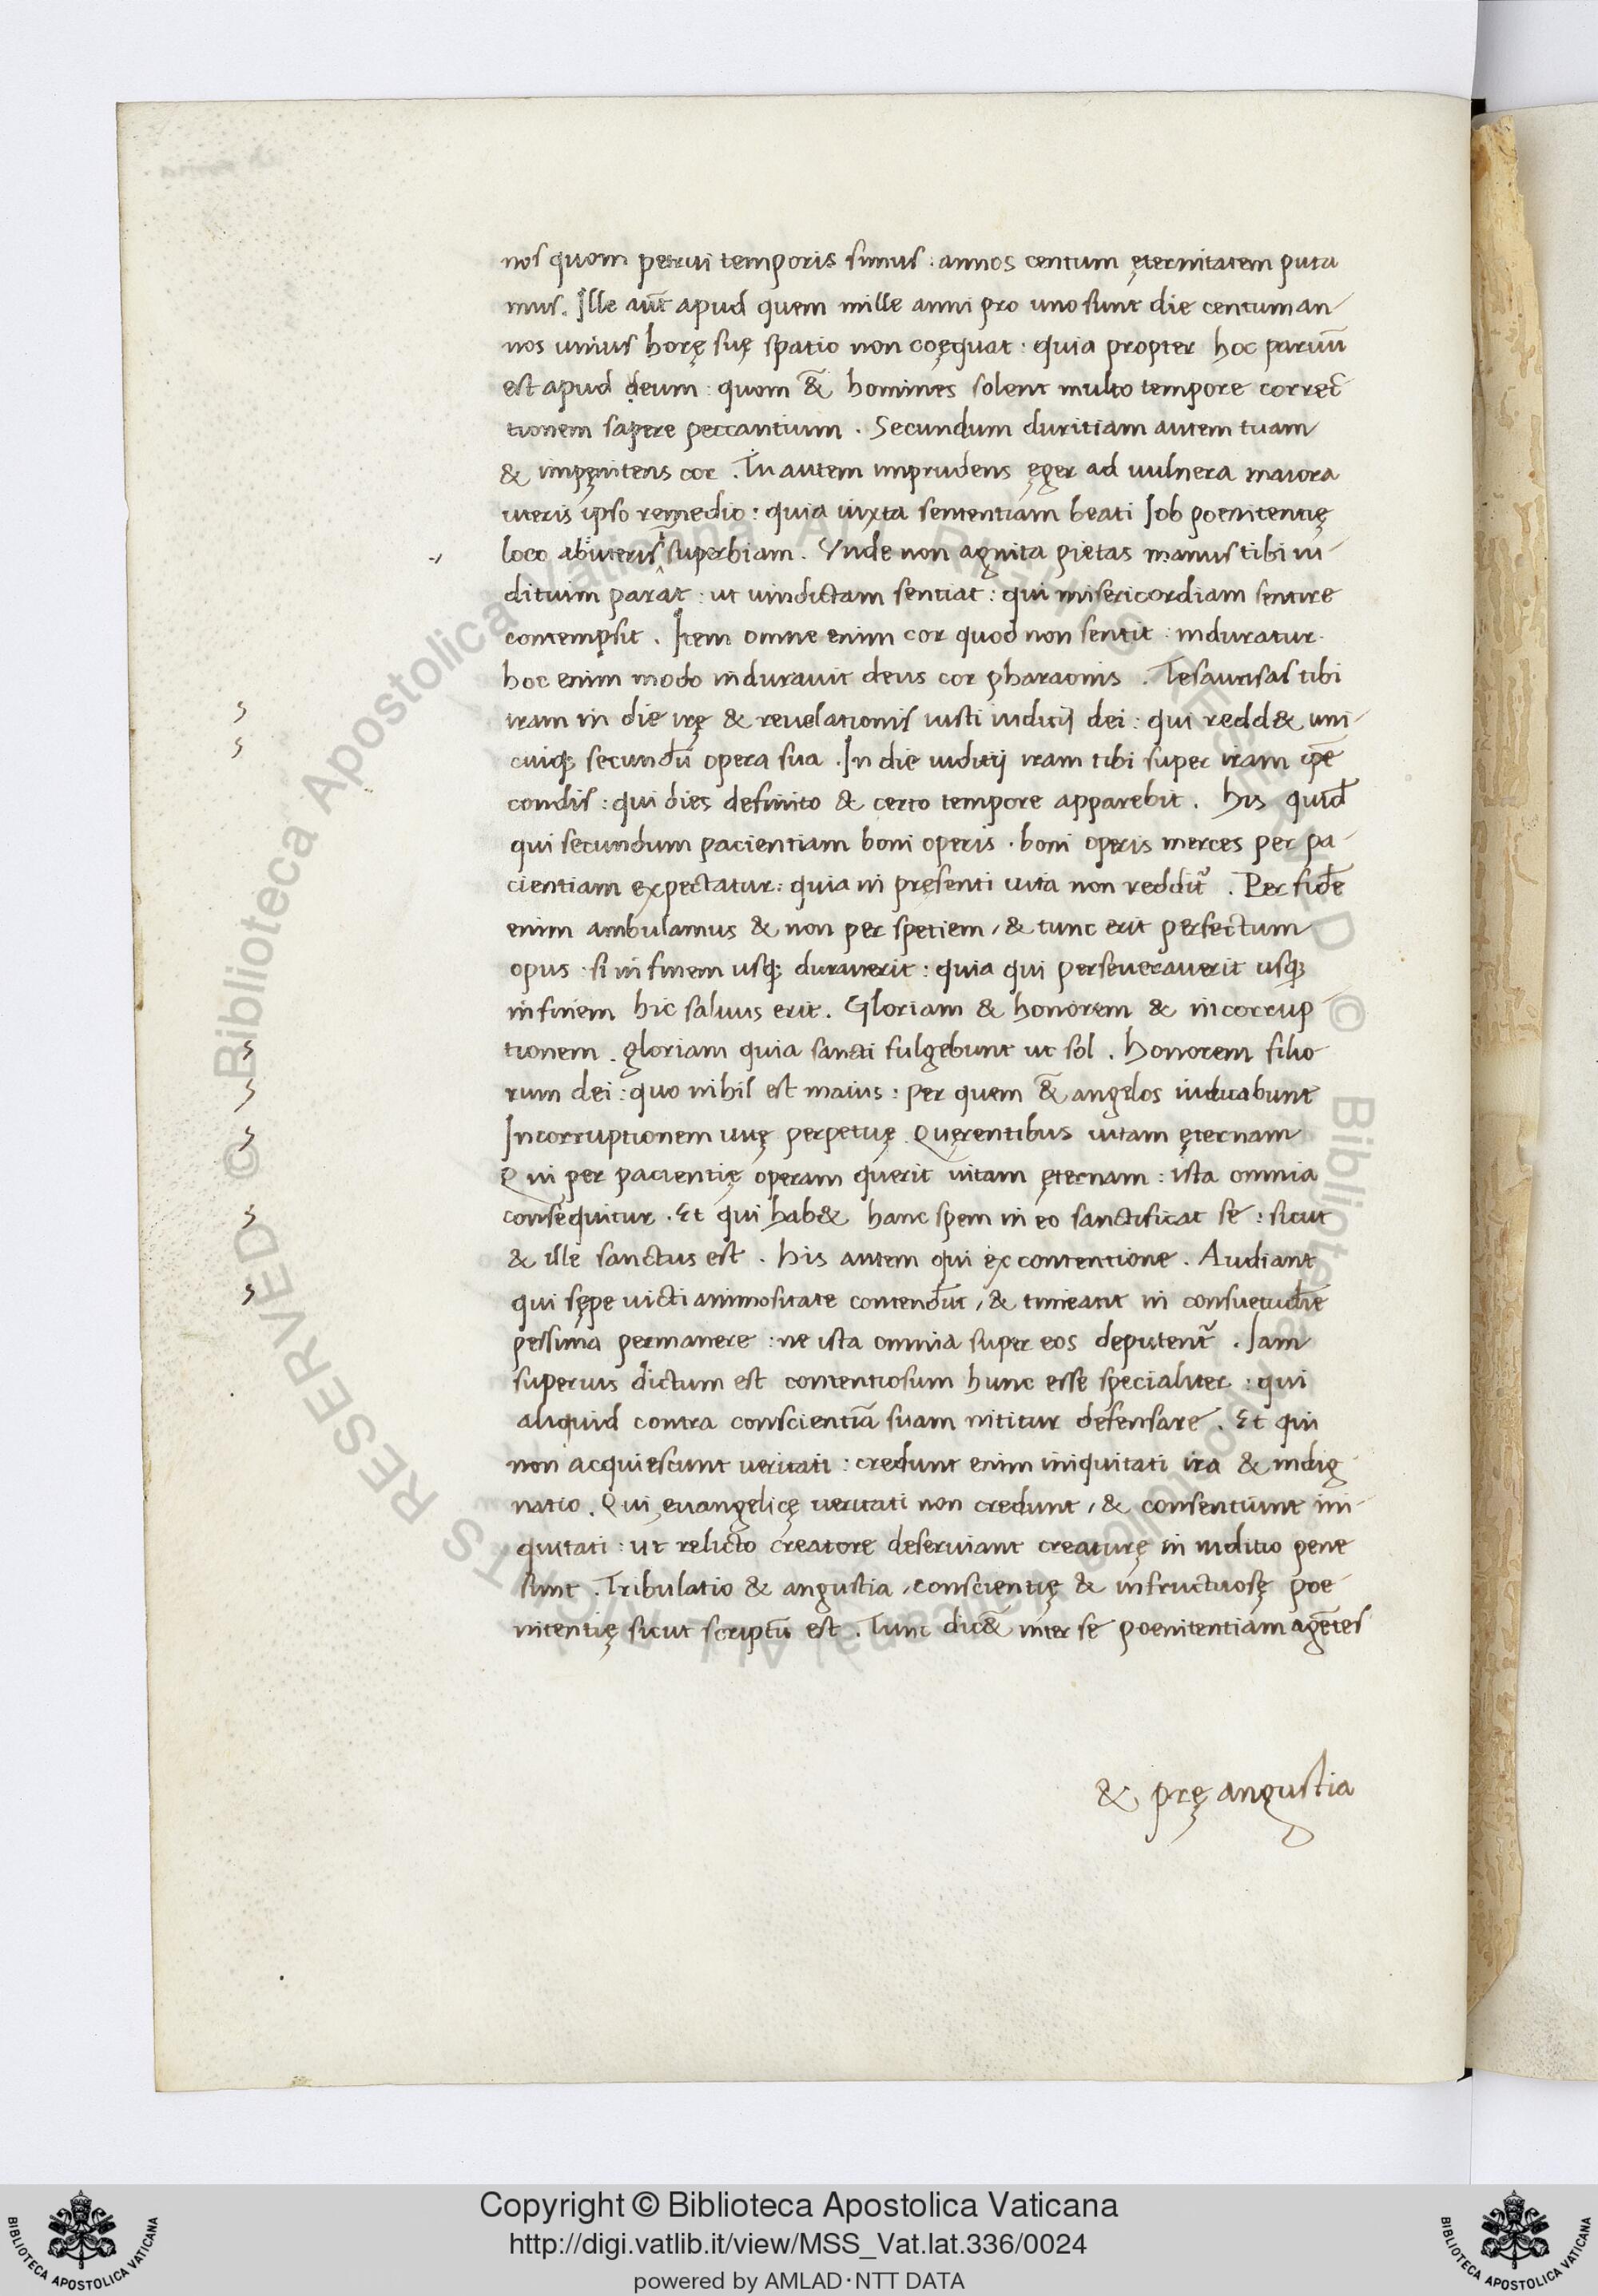 nos quom petrui temporis simus : annos centum ęternitatem puta
mus. Ille aut̄ apud quem mille anni pro uno sunt die centum an-
nos unius horę suę spatio non coęquat : quia propter hoc paruū
est apud deum : quom &̄ homines solent multo tempore correc̄
tionem sapere peccantium . Secundum duritiam autem tuam
& impęnitens cor . Tu autem imprudens ęger ad uulnera maiora
uteris ipso remedio : quia iuxta sententiam beati Job poenitentię
loco abuteris superbiam . Vnde non agnita pietas manus tibi iu-
dituim parat : ut uindictam sentiat : qui misericordiam sentire
contempsit . Item omne enim cor quod non sentit : induratur .
hoc enim modo indurauit deus cor pharaonis . Tesaurisas tibi
iram in die irę & reuelationis iusti iuditij dei : qui redd& uni-
cuiq; secundū opera sua . In die iuditij iram tibi super iram
condis : qui dies definito & certo tempore apparebit . his quid̄
qui secundum pacientiam boni operis . boni operis merces per pa-
cientiam expectatur : quia in pręsenti uita non reddit̄ . Per fidē
enim ambulamus & non per spetiem / & tunc erit perfectum
opus : si in finem usq; durauerit : quia qui perseuerauerit usq;
in finem hic saluus erit . Gloriam & honorem & incorrup
tionem . gloriam quia sancti fulgebunt ut sol . honorem filio
rum dei : quo nihil est maius : per quem &̄ angelos iudicabunt
Incorruptionem uitę perpetuę . Quęrentibus uitam ęternam
Qui per pacientię operam querit uitam ęternam : ista omnia
consequitur . Et qui hab& hanc spem in eo sanctificat se : sicut
& ille sanctus est . his autem qui ex contentione . Audiant
qui sępe uicti animositate contendūt / & timeant in consuetudīe
pessima permanere : ne ista omnia super eos deputent̄ . Iam
superius dictum est contentiosum hunc esse specialiter : qui
aliquid contra conscientiā suam nititur defensare . Et qui
non acquiescunt ueritati : credunt enim iniquitati ira & indig
natio . Qui euangelicę ueritati non credunt / & consentiunt ini-
quitati : ut relicto creatore deseruiant creaturę in iuditio pene
sunt . Tribulatio & angustia / conscientię & infructuosę poe
nitentię sicut scriptū est . Tunc dic&̄ inter se poenitentiam agētes
& prę angustia
© Biblioteca Apostolica Vaticana, ALL RIGHTS RESERVED
Copyright © Biblioteca Apostolica Vaticana
http://digi.vatlib.it/view/MSS_Vat.lat.336/0024
powered by AMLAD·NTT DATA
BIBLIOTECA APOSTOLICA VATICANA
BIBLIOTECA APOSTOLICA VATICANA